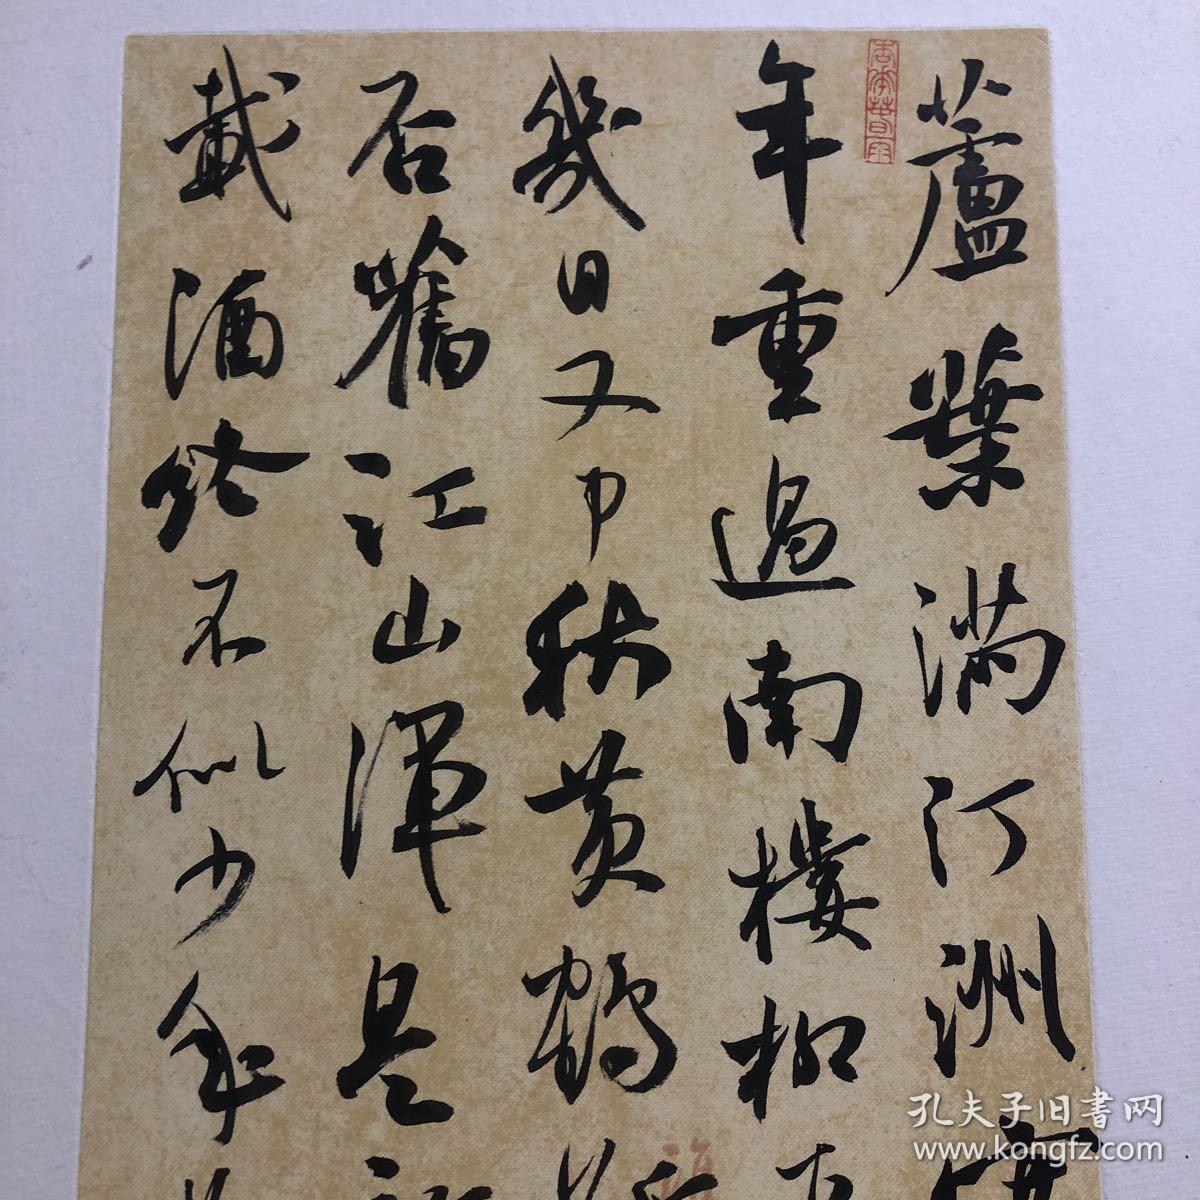 蘆葉滿汀洲
年重過南樓柳
幾日又中秋黄鶴
否舊江山渾是
載酒終不似少年
孔夫子旧書网
www.kongfz.com